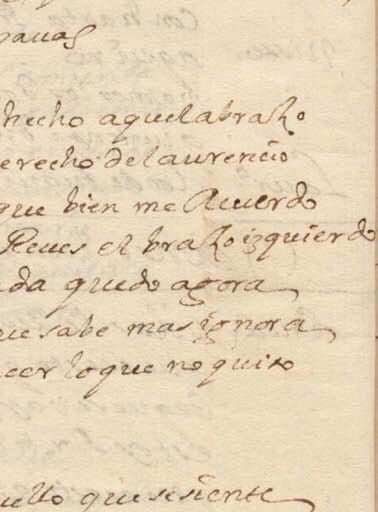 pauas
hecho aquel abrazo
erecho de laurencio
que bien me Acuerdo
Reues el brazo izquierdo
da quedo agora
ue sabe mas ignora
cer lo que no quiso
uello que se siente